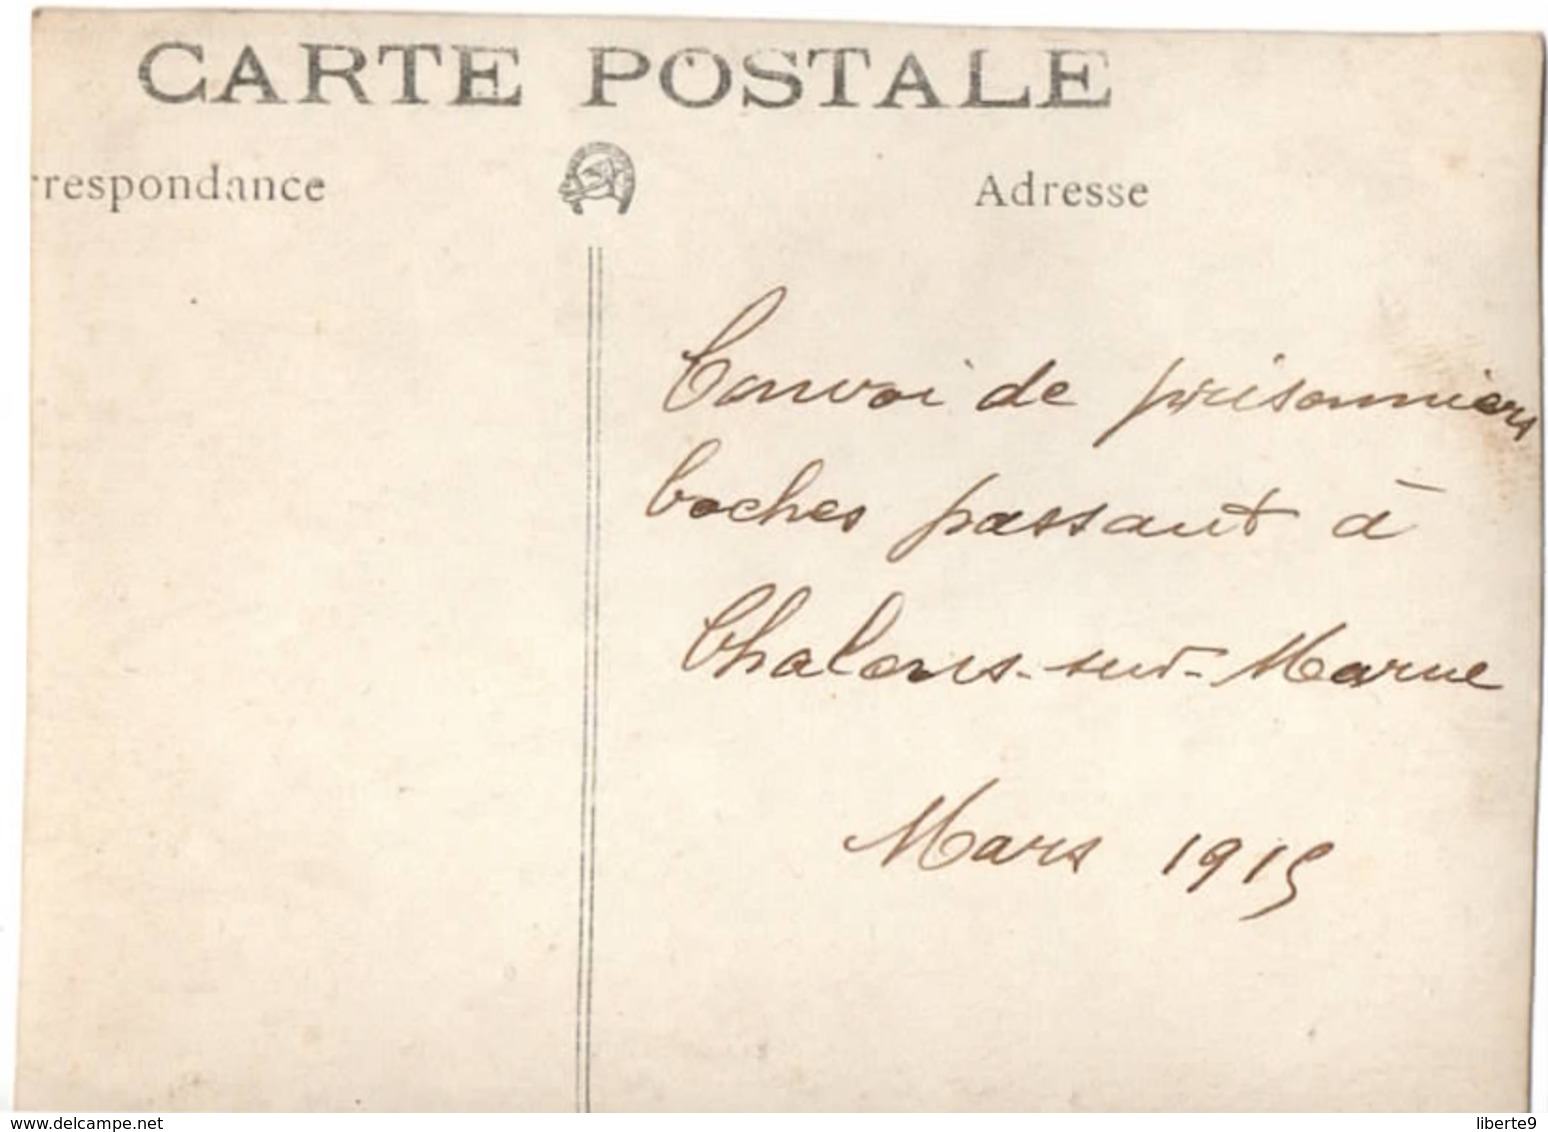 CARTE POSTALE
rrespondance
Adresse
Convoi de prisonniers
boches passant à
Chalons-sur-Marne
Mars 1915
www.delcampe.net
liberte9